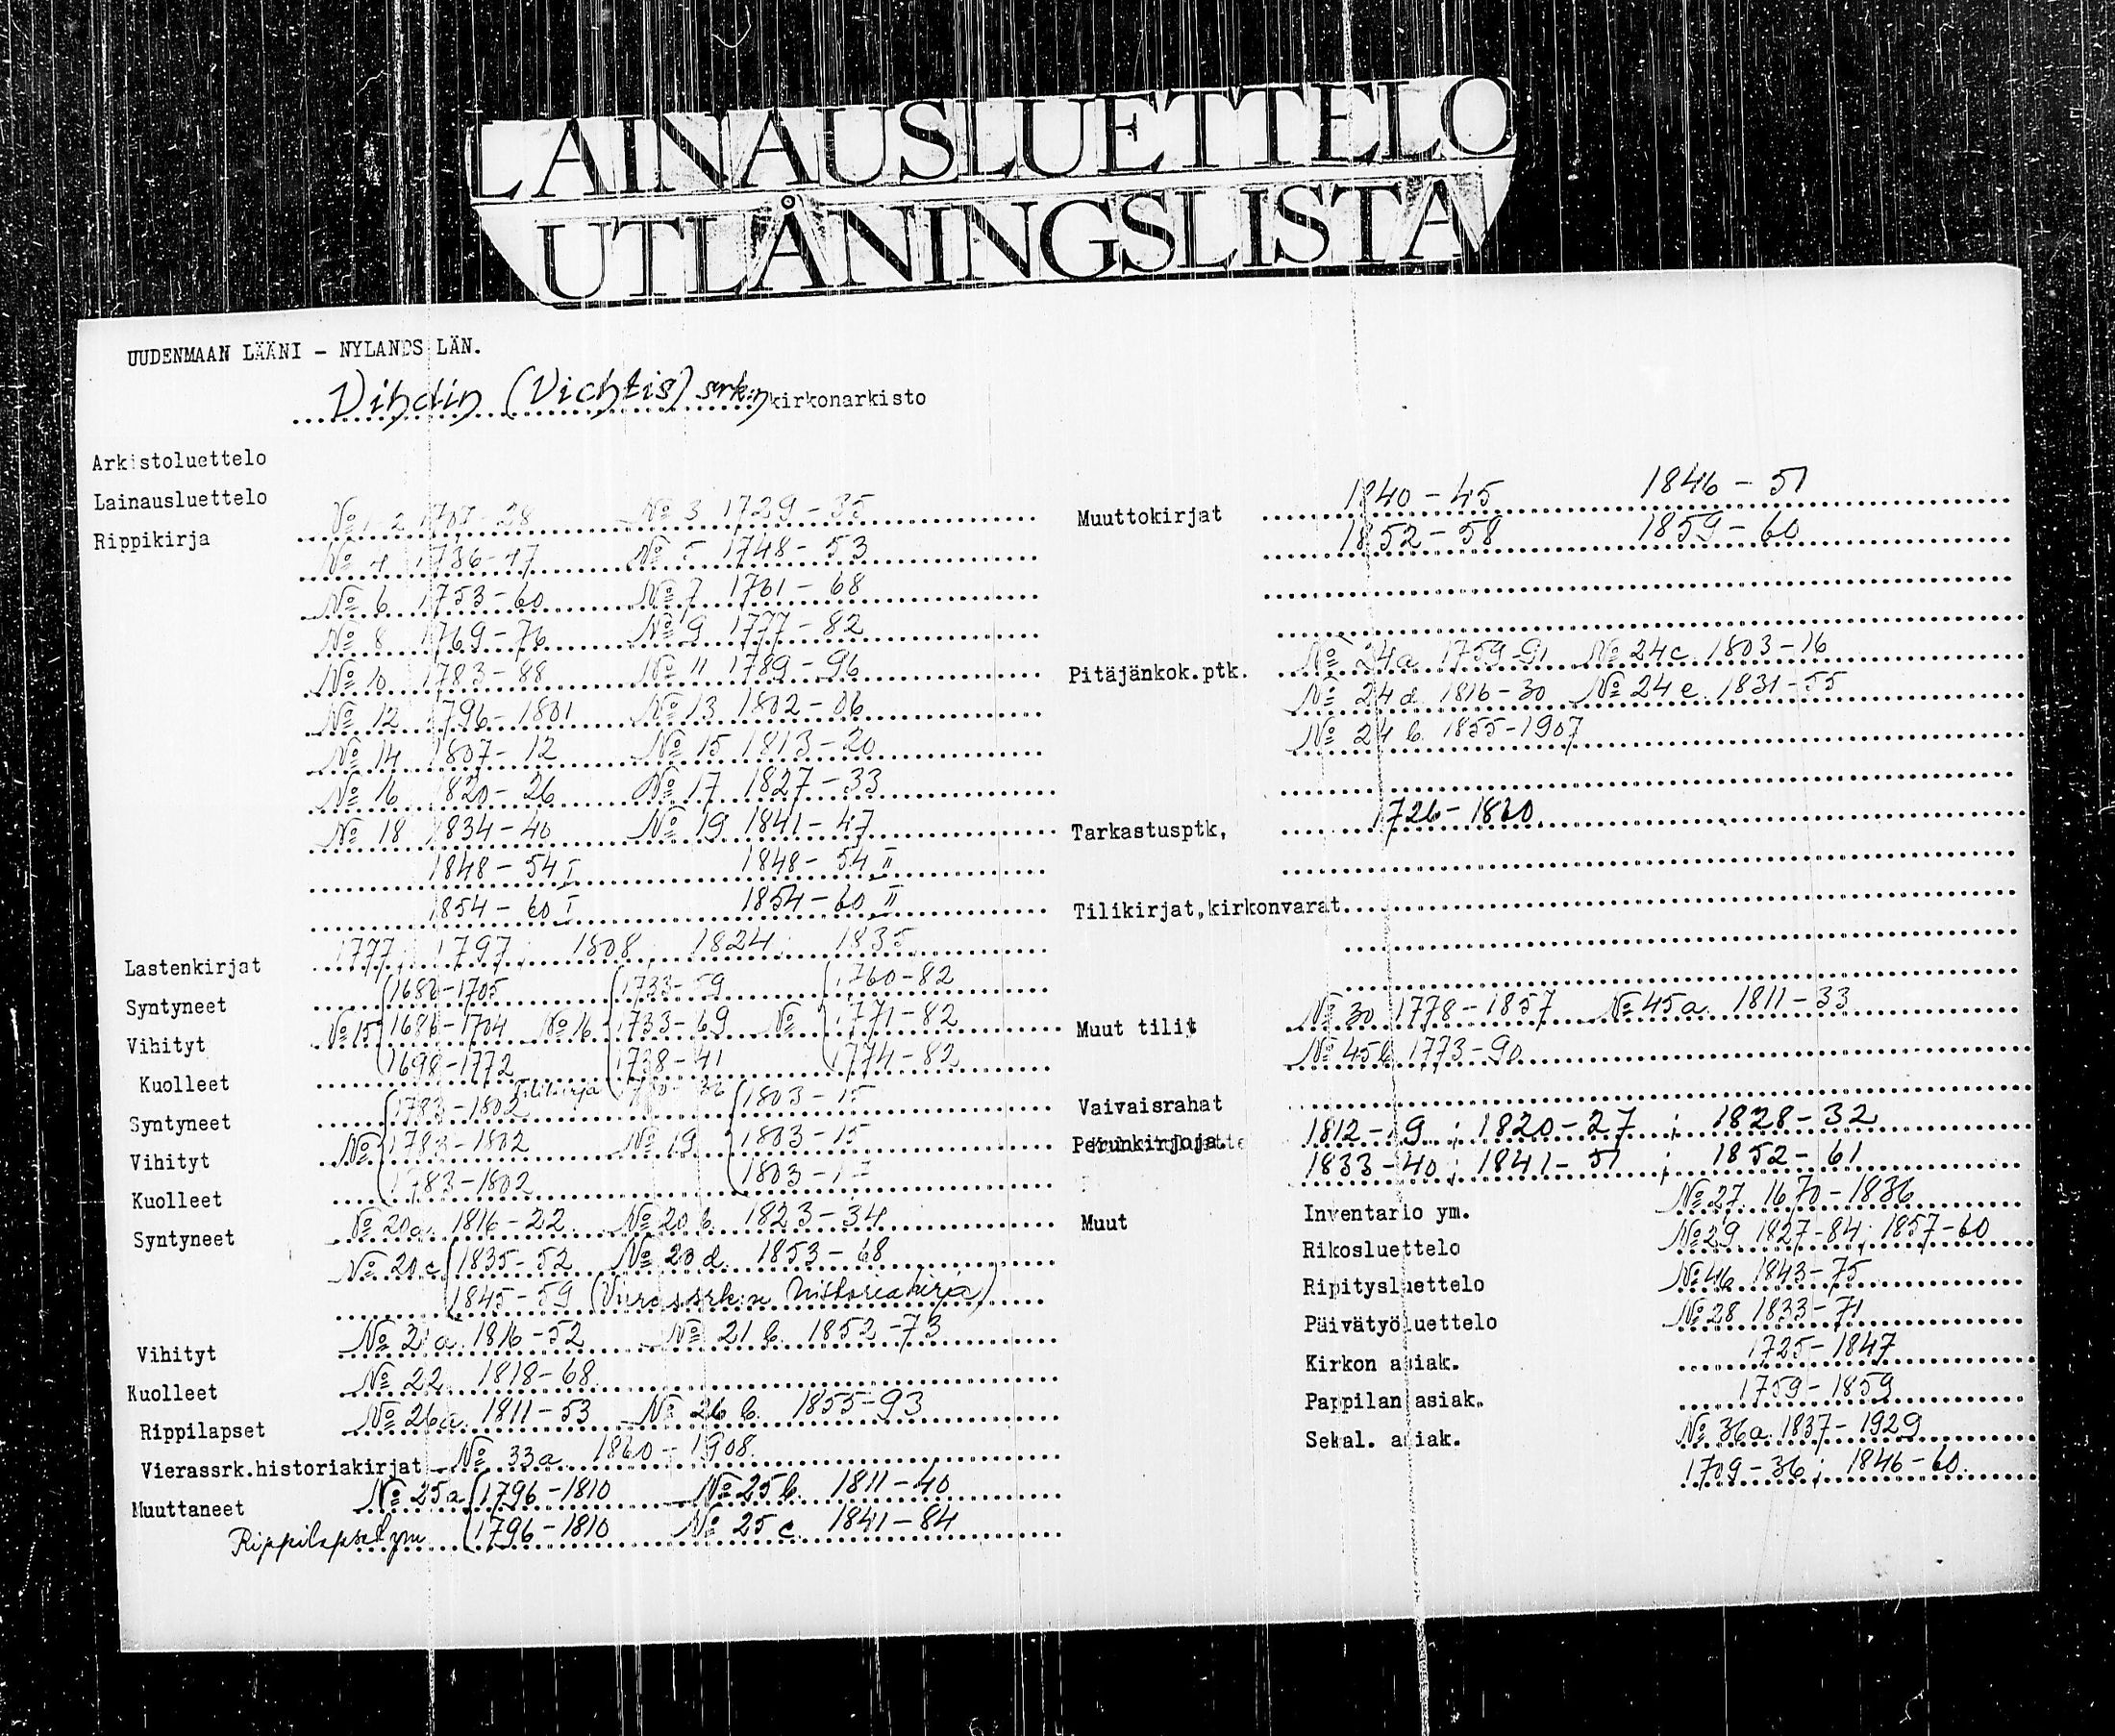 LAINAUSLUETTELO
UTLÅNINGSLISTA
UUDENMAAN LÄÄNI - NYLANDS LÄN.
Vihdin (Vichtis) srk:n kirkonarkisto
Arkistoluettelo
Lainausluettelo
Rippikirja № 1-2 1707-28 № 3 1729-35
№ 4 1736-47 № 5 1748-53
№ 6 1753-60 № 7 1761-68
№ 8 1769-76 № 9 1777-82
№ 10 1783-88 № 11 1789-96
№ 12 1796-1801 № 13 1802-06
№ 14 1807-12 № 15 1813-20
№ 16 1820-26 № 17 1827-33
№ 18 1834-40 № 19 1841-47
1848-54 I 1848-54 II
1854-60 I 1854-60 II
Lastenkirjat 1777; 1797; 1808; 1824; 1835
Syntyneet 1688-1705 1733-59 1760-82
Vihityt № 15 1686-1704 № 16 1733-69 № 1771-82
Kuolleet 1698-1772 1738-41 1774-82
Tilikirja
Syntyneet 1783-1802 1803-15
Vihityt № 1783-1802 № 19 1803-15
Kuolleet 1783-1802 1803-
Syntyneet № 20a 1816-22 № 20 b. 1823-34
№ 20 c 1835-52 № 20 d. 1853-68
1845-59 (Vierassrk:n historiakirja)
Vihityt № 21 a. 1816-52 № 21 b. 1852-73
Kuolleet № 22 1818-68
Rippilapset № 26a. 1811-53 № 26 b. 1855-93
Vierassrk.historiakirjat № 33a 1860-1908.
Muuttaneet № 25a 1796-1810 № 25 b. 1811-40
Rippilapset ym 1796-1810 № 25 c. 1841-84
Muuttokirjat 1840-45 1846-51
1852-58 1859-60
Pitäjänkok.ptk. № 24a 1759-91 № 24c 1803-16
№ 24 d. 1816-30 № 24 e. 1831-55
№ 24 b. 1855-1907
Tarkastusptk, 1726-1860.
Tilikirjat,kirkonvarat
Muut tilit № 30 1778-1857 № 45a. 1811-33
№ 45 b. 1773-90
Vaivaisrahat
Perunkirjoja 1812-19; 1820-27; 1828-32
1833-40; 1841-51; 1852-61
Muut Inventario ym. № 27. 1670-1836
Rikosluettelo № 29 1827-84; 1857-60
Ripitysluettelo № 46 1843-75
Päivätyöluettelo № 28 1833-71
Kirkon asiak. 1725-1847
Pappilan asiak. 1759-1859
Sekal. asiak. № 36a 1837-1929
1709-36; 1846-60.